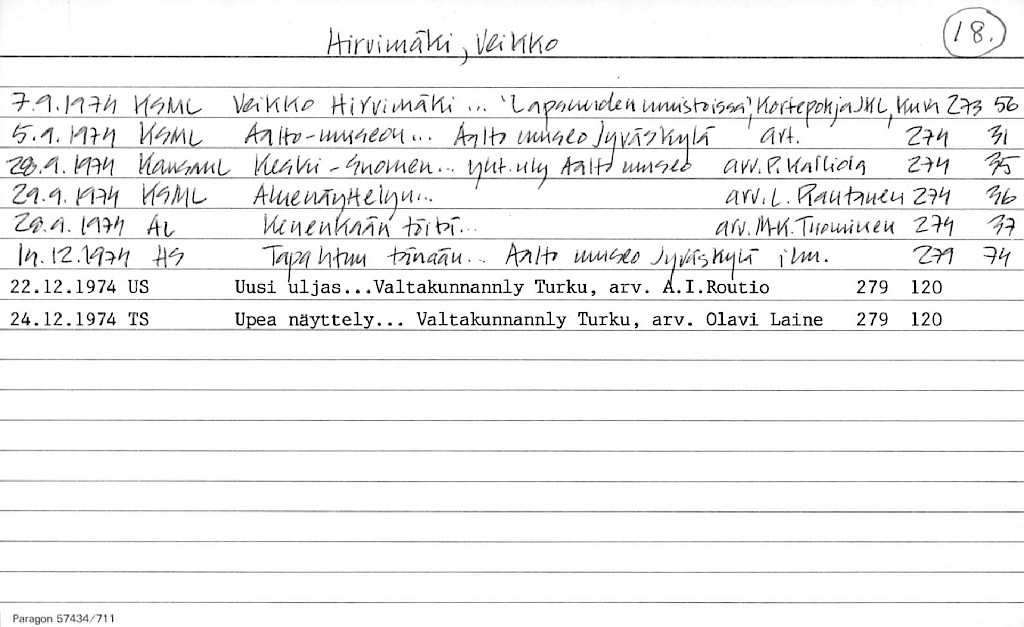 Hirvimäki, Veikko
18.
7.9.1974 KSML Veikko Hirvimäki ... "Lapsuuden muistoissa", Kortepohja JKL, kuva 273 56
5.9.1974 KSML Aalto-museon... Aalto museo Jyväskylä art. 274 31
28.9.1974 Kansanl Keski-Suomen... yht.nly Aalto museo arv. P. Kalliola 274 35
29.9.1974 KSML Aluenäyttelyn... arv. L. Rautanen 274 36
28.9.1974 AL Kenenkään töitä... arv. M-K. Tuominen 274 37
12.1974 HS Tapahtuu tänään... Aalto museo Jyväskylä ilm. 279 74
22.12.1974 US Uusi uljas...Valtakunnannly Turku, arv. A.I.Routio 279 120
24.12.1974 TS Upea näyttely... Valtakunnannly Turku, arv. Olavi Laine 279 120
Paragon 57434/711